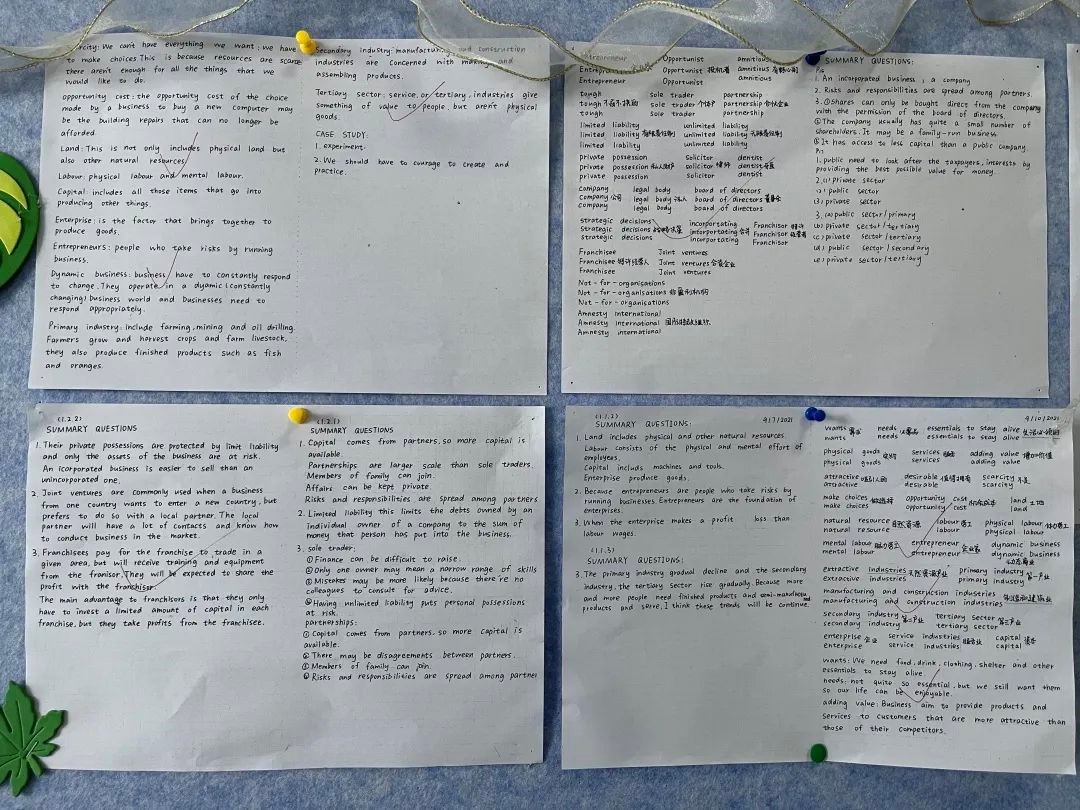 rcity: We can't have everything we want; we have
to make choices. This is because resources are scarce
there aren't enough for all the things that we
would like to do.
opportunity cost: the opportunity cost of the choice
made by a business to buy a new computer may
be the building repairs that can no longer be
afforded.
Land: This is not only includes physical land but
also other natural resources
Labour: physical labour and mental labour.
Capital: includes all those items that go into
producing other things.
Enterprise: is the factor that brings together to
produce goods.
Entrepreneurs: people who take risks by running
business.
Dynamic business: business have to constantly respond
to change. They operate in a dyamic (constantly
changing) business world and businesses need to
respond appropriately.
Primary industry: include farming, mining and oil drilling.
Farmers grow and harvest crops and farm livestock,
they also produce finished products such as fish
and oranges.
Secondary industry: manufacturing and construction
industries are concerned with making and
assembling products.
Tertiary sector: service, or tertiary, industries give
something of value to people, but aren't physical
goods.
CASE STUDY:
1. experiment.
2. We should have to courage to create and
practice.
Entrepreneur Opportunist amnitious
Entrepreneur Opportunist 投机者 amnitious 有野心的
Entrepreneur Opportunist amnitious
tough sole trader partnership
tough 不屈不挠的 sole trader 个体户 partnership 合伙企业
tough sole trader partnership
limited liability unlimited liability
limited liability 有限责任制 unlimited liability 无限责任制
limited liability unlimited liability
private possession solicitor dentist
private possession 私人财产 solicitor 律师 dentist 牙医
private possession solicitor dentist
Company legal body board of directors
Company 公司 legal body 法人 board of directors 董事会
Company legal body board of directors
strategic decisions incorportating
Strategic decisions 战略决策 incorportating 合并 Franchisor 特许
strategic decisions incorportating Franchisor 经营者
Franchisor
Franchisee Joint ventures
Franchisee 特许经营人 Joint ventures 合资企业
Franchisee Joint ventures
Not-for-organisations
Not-for-organisations 非盈利机构
Not-for-organisations
Amnesty International
Amnesty International 国际特赦组织
Amnesty international
SUMMARY QUESTIONS:
1. An incorporated business, a company
2. Risks and responsibilities are spread among partners.
3. ①Shares can only be bought direct from the company
with the permission of the board of directors.
②The company usually has quite a small number of
shareholders. It may be a family-run business.
③It has access to less capital than a public company.
1. public need to look after the taxpayers, interests by
providing the best possible value for money.
2. (1) private sector
(2) public sector
(3) private sector
3. (a) public sector/primary
(b) private sector/tertiary
(c) private sector/tertiary
(d) public sector/secondary
(e) private sector/tertiary
(1.2.2)
SUMMARY QUESTIONS
1. Their private possessions are protected by limit liability
and only the assets of the business are at risk.
An icorporated business is easier to sell than an
unincorporated one.
2. Joint ventures are commonly used when a business
from one country wants to enter a new country, but
prefers to do so with a local partner. The local
partner will have a lot of contacts and know how
to conduct business in the market.
3. Franchisees pay for the franchise to trade in a
given area, but will receive training and equipment
from the franisor. They will be expected to share the
profit with the franchisor.
The main advantage to franchisors is that they only
have to invest a limited amount of capital in each
franchise, but they take profits from the franchisee.
(1.2.1)
SUMMARY QUESTIONS
1. Capital comes from partners, so more capital is
available.
Partnerships are larger scale than sole traders.
Members of family can join.
Affairs can be kept private.
Risks and responsibilities are spread among partners
2. Limited liability this limits the debts owned by an
individual owner of a company to the sum of
money that person has put into the business.
3. sole trader:
①Finance can be difficult to raise.
②Only one owner may mean a narrow range of skills
③Mistakes may be more likely because there're no
colleagues to consult for advice.
④Having unlimited liability puts personal possessions
at risk.
partnerships:
① Capital comes from partners, so more capital is
available.
② There may be disagreements between partners.
③ Members of family can join.
④ Risks and responsibilities are spread among partner
(1.1.2) 9/7/2021
SUMMARY QUESTIONS:
1. Land includes physical and other natural resources.
Labour consists of the physical and mental effort of
employees.
Capital includs machines and tools.
Enterprise produce goods.
2. Because entrepreneurs are people who take risks by
running businesses. Entrepreneurs are the foundation of
enterprises.
3. When the enterprise makes a profit loss than
labour wages.
(1.1.3)
SUMMARY QUESTIONS:
3. The primary industry gradual decline and the secondary
industry, the tertiary Sector rise gradually. Because more
and more people need finished products and
products and serve. I think these trends will continue.
9/10/2021
wants needs essentials to stay alive
wants needs essentials to stay alive
physical goods services 服务 adding value 增加价值
physical goods services adding value
attractive 吸引人的 desirable 值得拥有 scarcity 不足
attractive desirable scarcity
make choices 做选择 opportunity cost 机会成本 land 土地
make choices opportunity cost land
natural resource 自然资源 labour 劳工 physical labour 体力劳工
natural resource labour physical labour
mental labour 脑力劳工 entrepreneur 企业家 dynamic business
mental labour entrepreneur dynamic business
动态商业
extractive industries 天然资源产业 primary industry 第一产业
extractive industries primary industry
manufacturing and construction industries 制造和建筑业
manufacturing and construction industries
secondary industry 第二产业 tertiary sector 第三产业
secondary industry tertiary sector
enterprise 企业 service industries 服务业 capital 资本
enterprise service industries capital
wants: We need food, drink, clothing, shelter and other
essentials to stay alive.
needs: not quite so essential, but we still want them
so our life can be enjoyable.
adding value: Business aim to provide products and
services to customers that are more attractive than
those of their competitors.